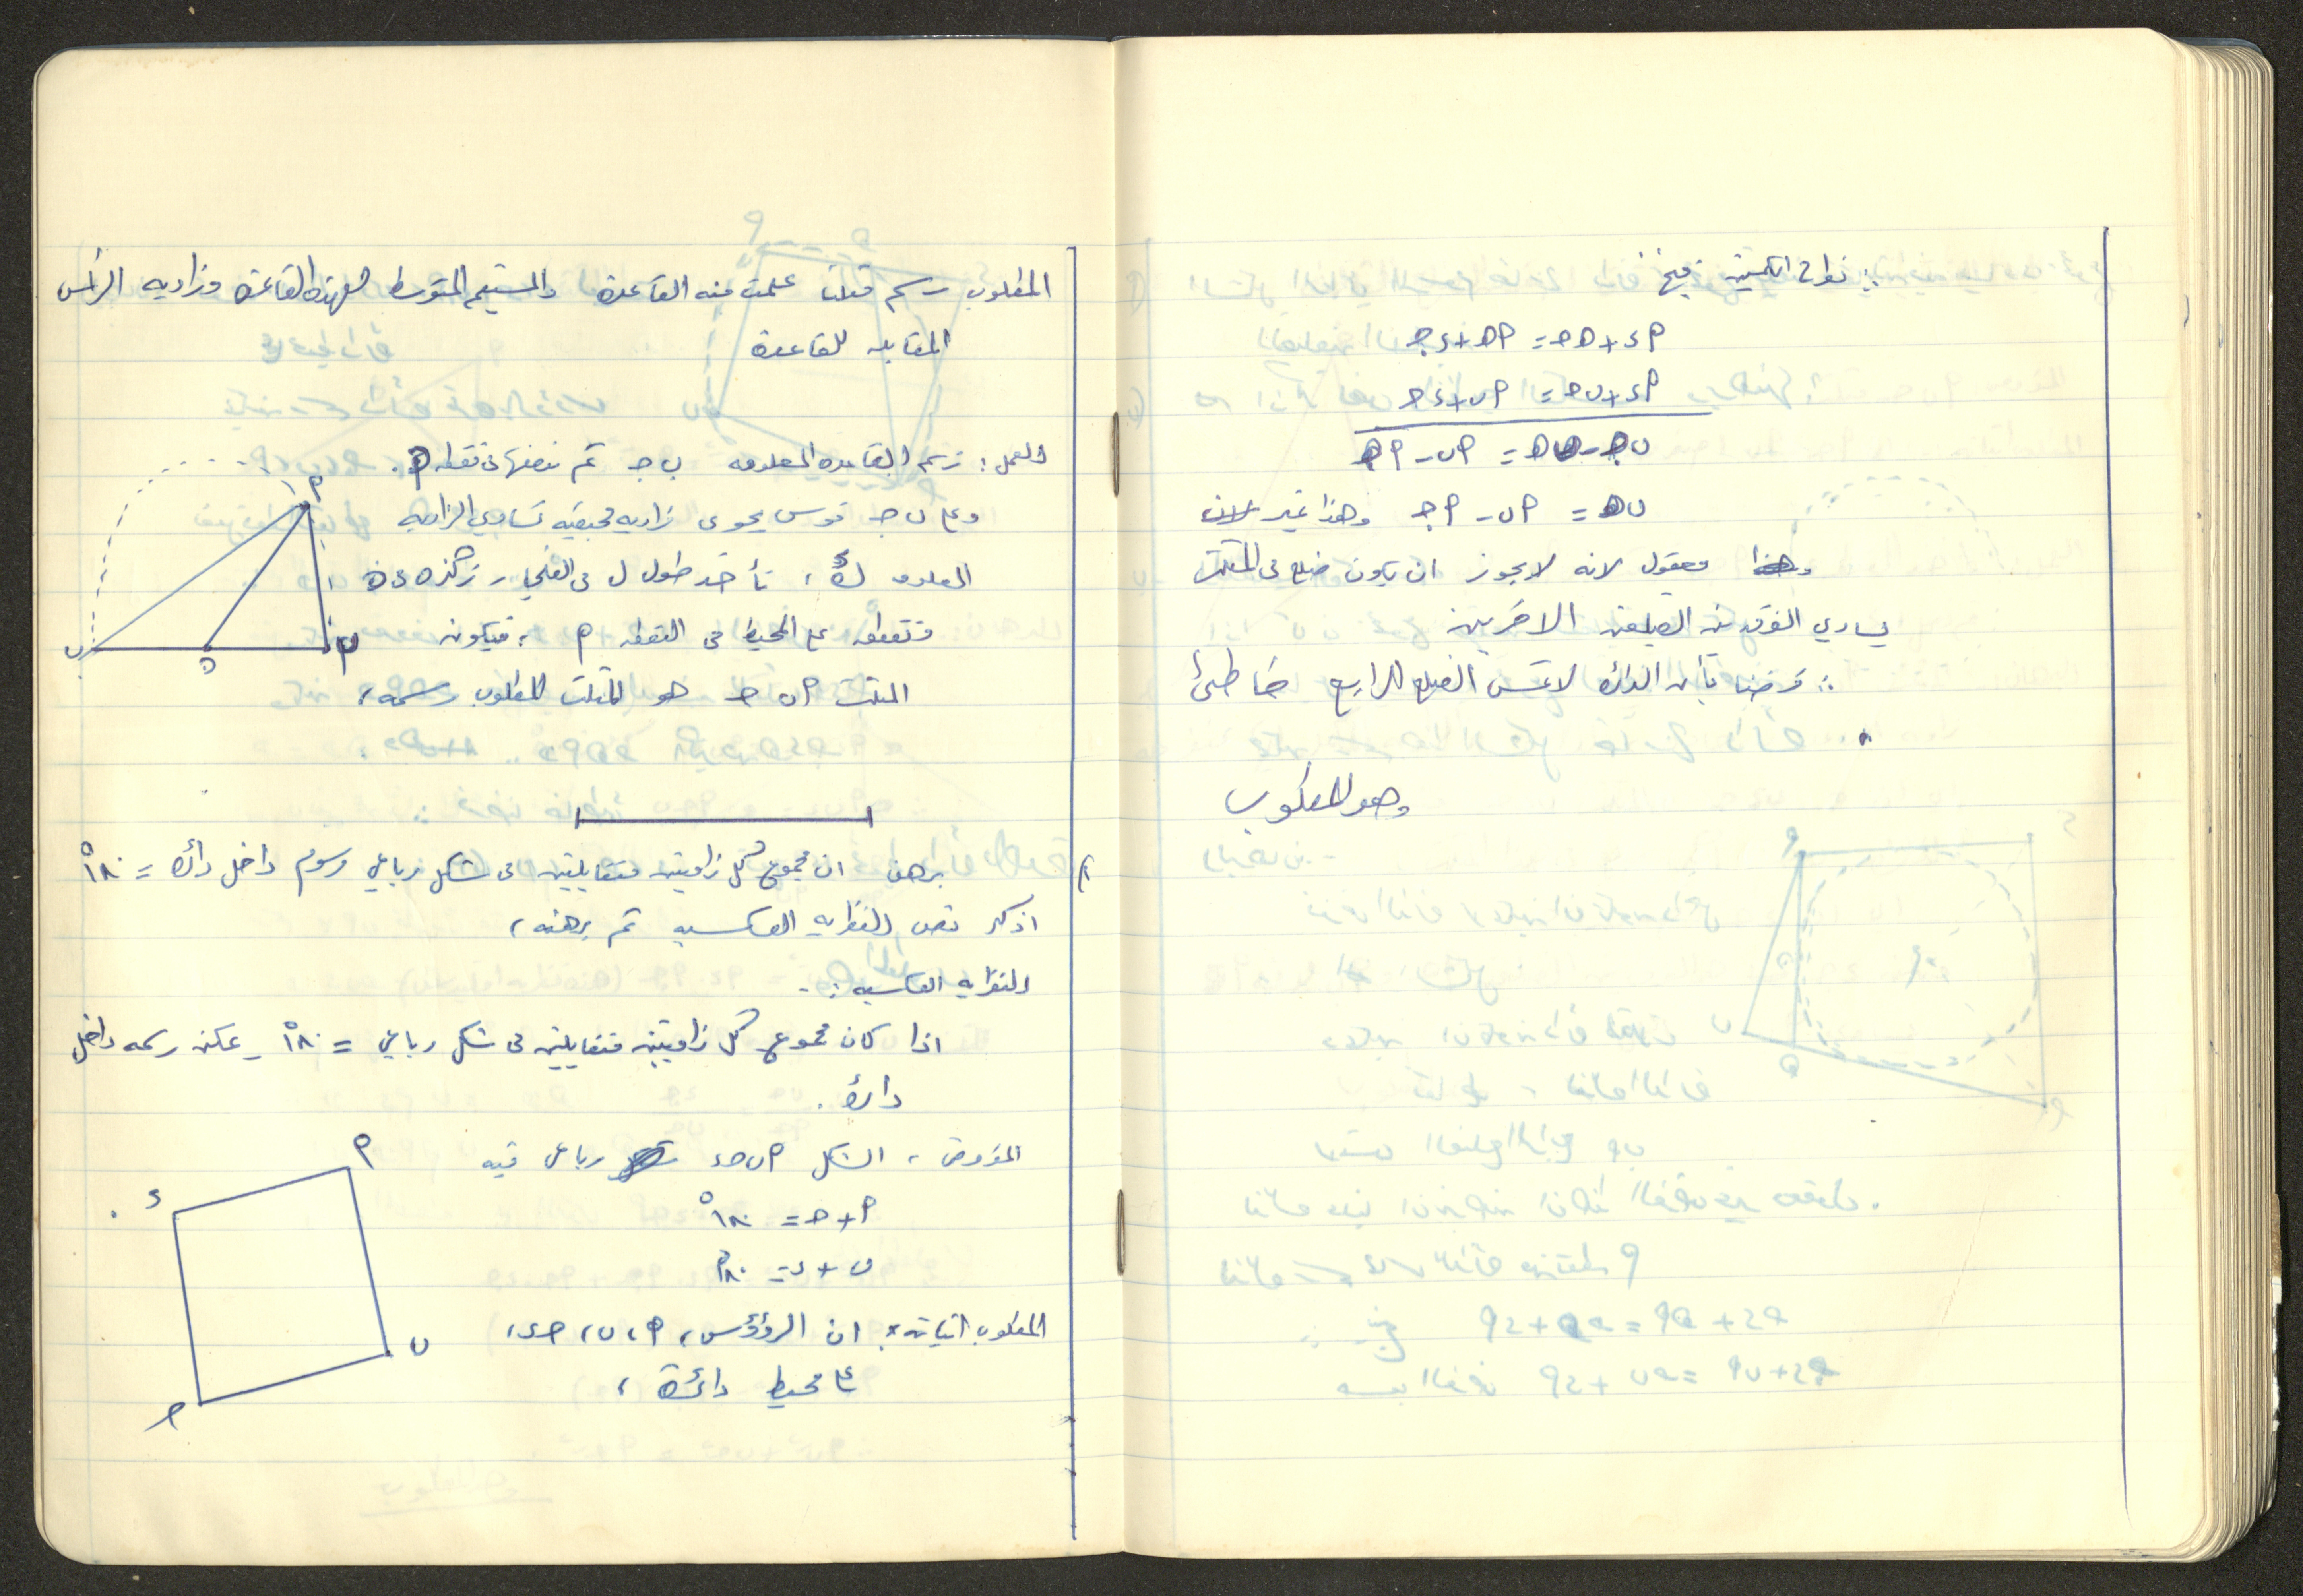 ∴ نواتج الكميتين فينتج:
٢د + هـ جـ = ٢هـ + د جـ
٢د + ب جـ = ٢ب + د جـ
ب جـ - هـ جـ = ٢ب - ٢هـ
ب هـ = ٢ب - ٢هـ وهذا غير
معقول لانه لا يجوز ان يكون ضلع في المثلث
يساوي الفرق بين الضلعين الاخرين
∴ فرضنا بأن الدائرة لا تمس الضلع الرابع خاطئ
وهو المطلوب
المطلوب رسم مثلث علمت منه القاعدة والمستقيم المتوسط لهذه القاعدة وزاوية الرأس
المقابلة للقاعدة
العمل: نرسم القاعدة المعلومة ب جـ ثم ننصفها في نقطة هـ.
وعلى ب جـ قوس يحوي زاوية محيطية تساوي الزاوية
المعلومة ، نأخذ طول ل في الفرجار نركزه في هـ
فنقطع على المحيط في النقطة ٢ ، فيكون
المثلث ٢ ب جـ هو المثلث المطلوب رسمه،
برهن ان مجموع كل زاويتين متقابلتين في شكل رباعي مرسوم داخل دائرة = ١٨٠°
اذكر نص النظرية العكسية ثم برهنه،
النظرية العكسية :-
اذا كان مجموع كل زاويتين متقابلتين في شكل رباعي = ١٨٠° يمكن رسمه داخل
دائرة.
المفروض ، الشكل ٢ ب جـ د رباعي فيه
٢ + جـ = ١٨٠°
ب + د = ١٨٠°
المطلوب اثباته: ان الرؤوس ٢، ب، جـ، د،
على محيط دائرة ،
٢
ب
هـ
د
٢
ب
جـ